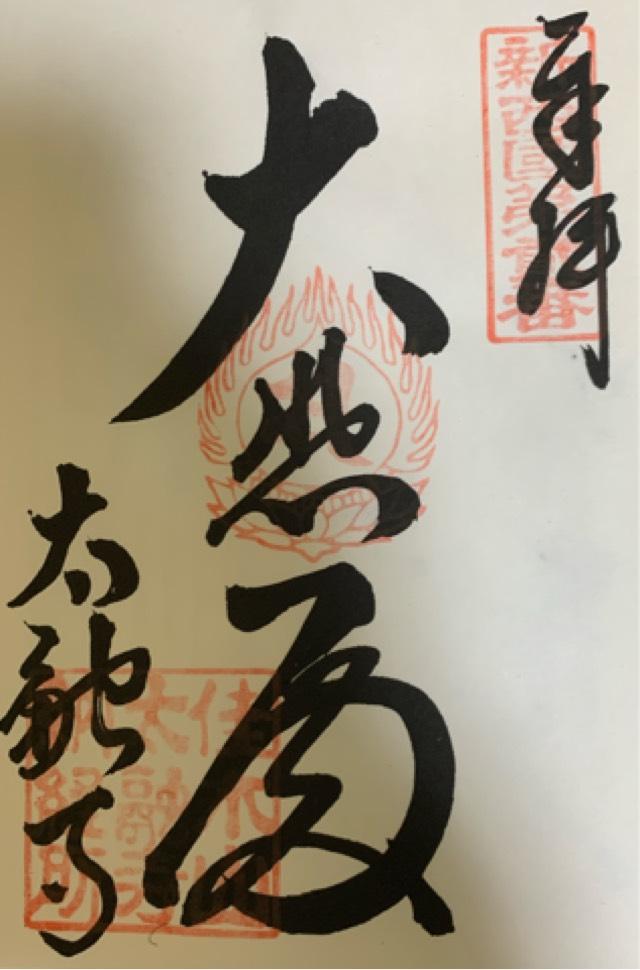 奉拝
新西國第貳番
大悲殿
太融寺
佳木山
太融寺
納経所